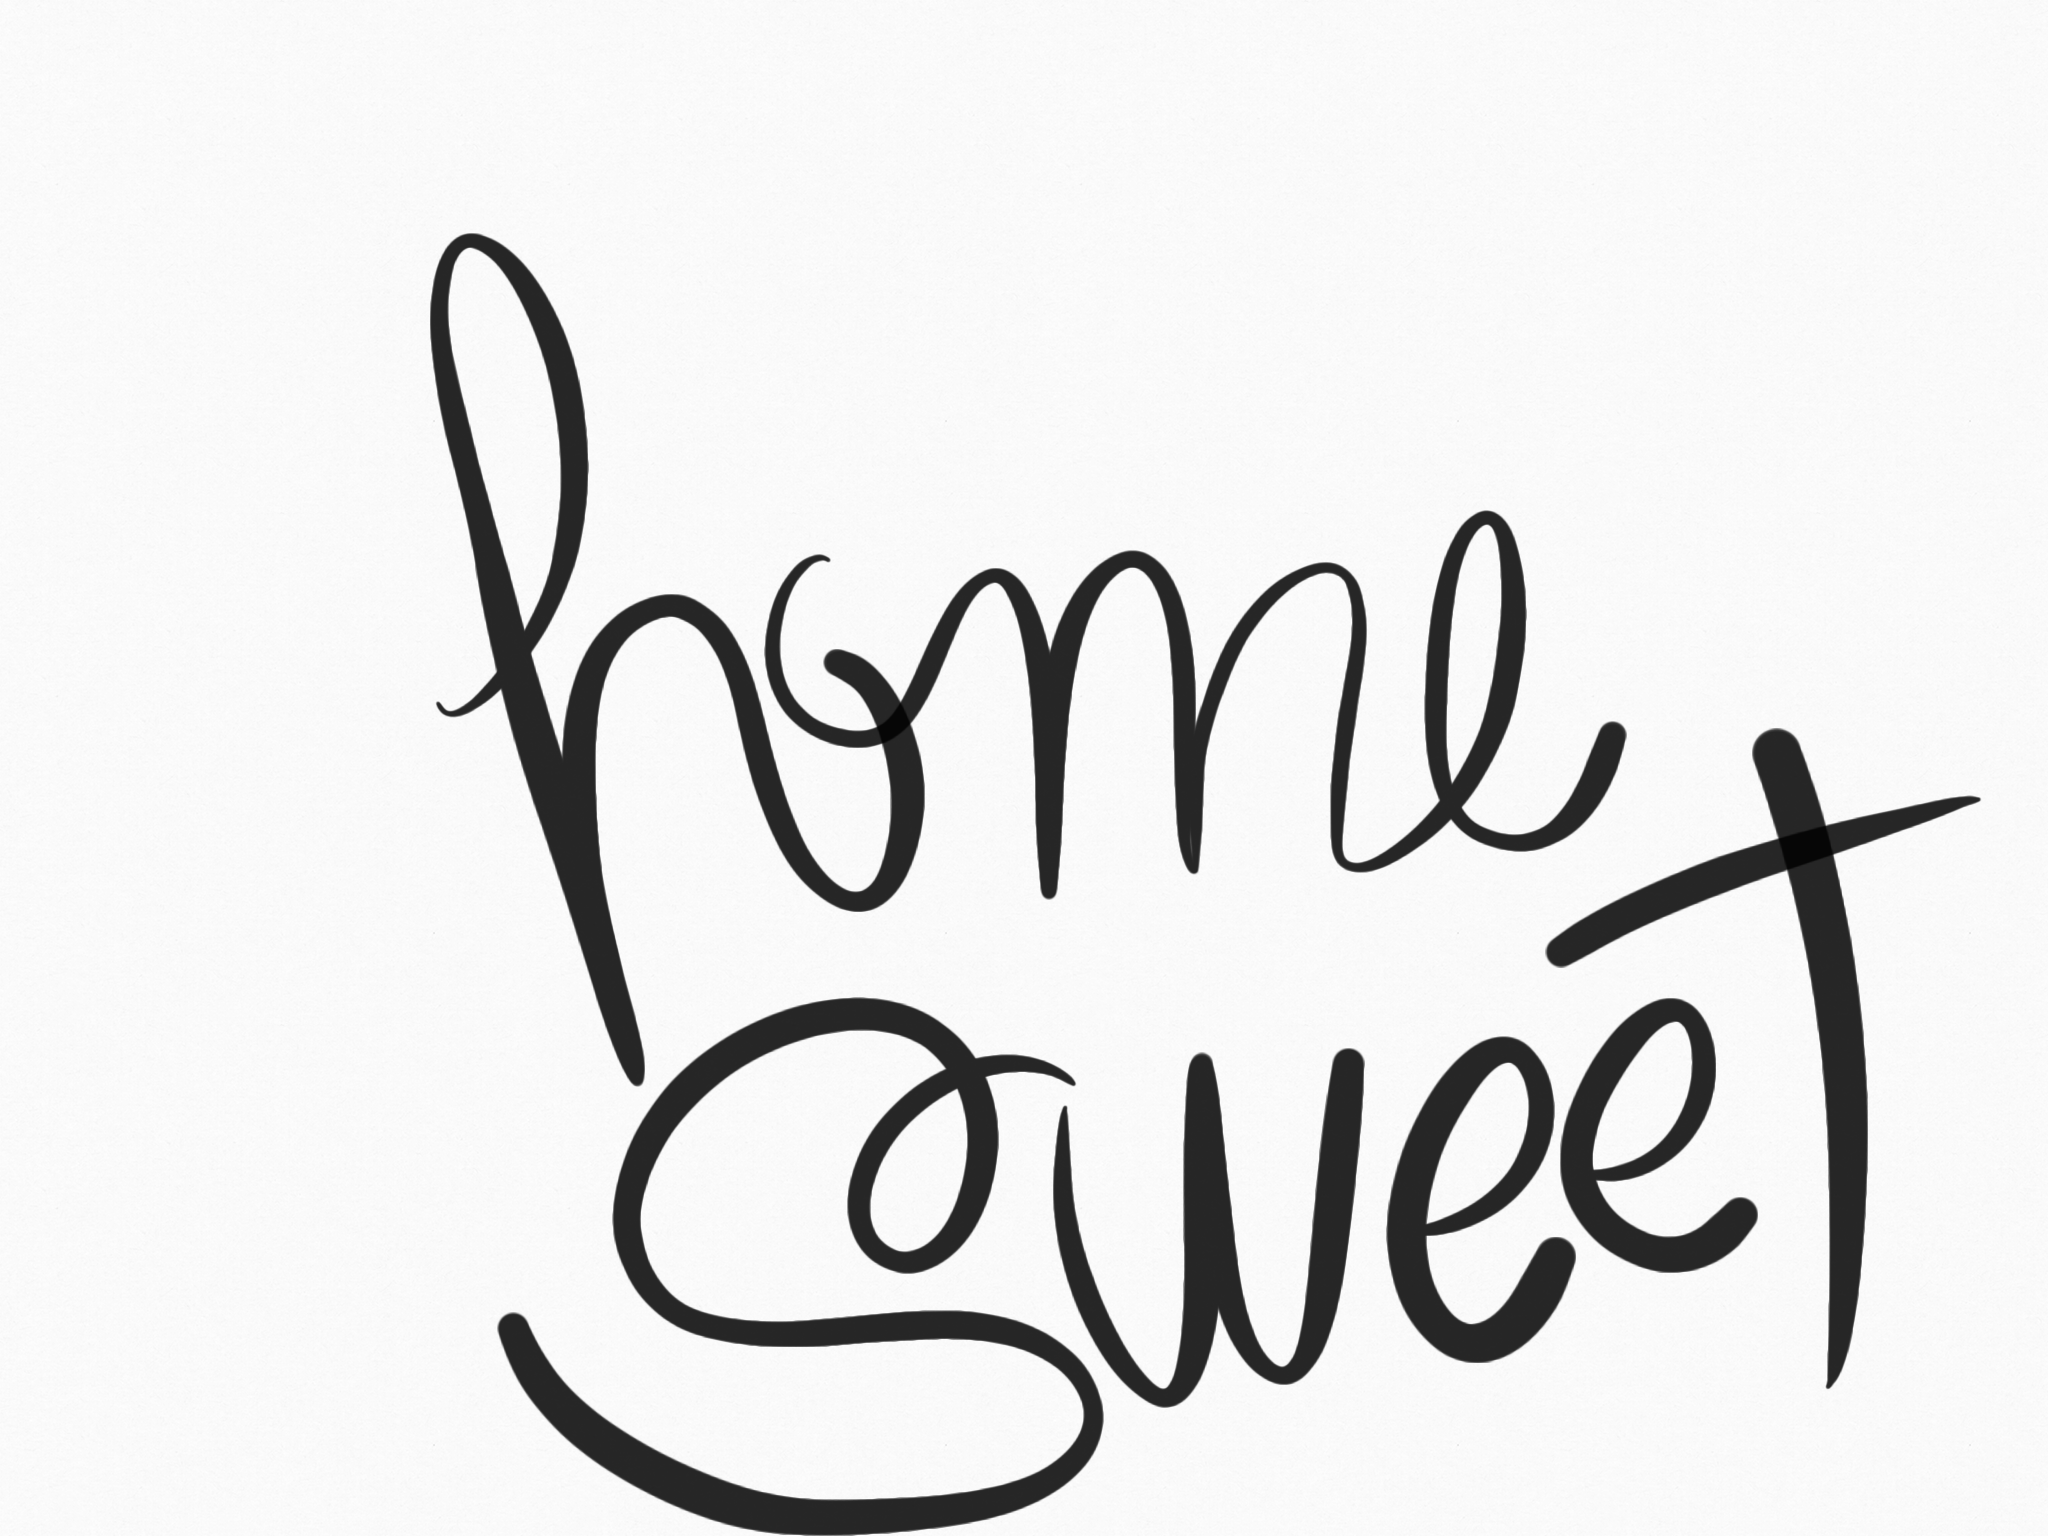 home
sweet